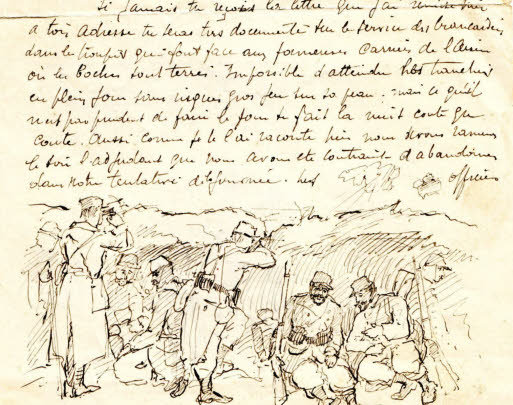 Si jamais tu reçois la lettre que j'ai
a ton adresse tu seras très documenté sur le service des brancardiers
dans les troupes qui font face aux fameuses carrières de l'Aisne
où les boches sont terrés. Impossible d'atteindre les tranchées
en plein jour sans risquer gros jeu sur sa peau : mais ce qu'il
n'est pas prudent de faire le jour se fait la nuit coute que
coute. Aussi comme je te l'ai raconté hier nous devons ramener
le soir l'adjudant que nous avons été contraint d'abandonner
dans notre tentative de journée. Les officiers